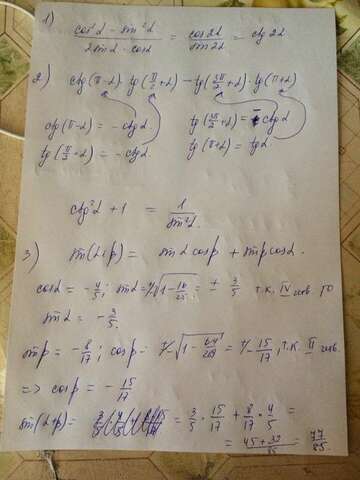 1)
cos²α - sin²α / 2sinα · cosα = cos2α / sin2α = ctg 2α
2) ctg(π-α) · tg(π/2+α) - tg(3π/2+α) · tg(π+α)
ctg(π-α) = -ctgα tg(3π/2+α) = -ctgα
tg(π/2+α) = -ctgα tg(π+α) = tgα
ctg²α + 1 = 1/sin²α.
3) sin(α+β) = sinα cosβ + sinβ cosα.
cosα = -4/5; sinα = +/- √(1-16/25) = ± 3/5 т.к. IV чтв. то
sinα = -3/5.
sinβ = -8/17; cosβ = +/- √(1-64/289) = +/- 15/17, т.к. III чтв.
=> cosβ = -15/17
sin(α+β) = = 3/5 · 15/17 + 8/17 · 4/5 =
= 45+32/85 = 77/85.